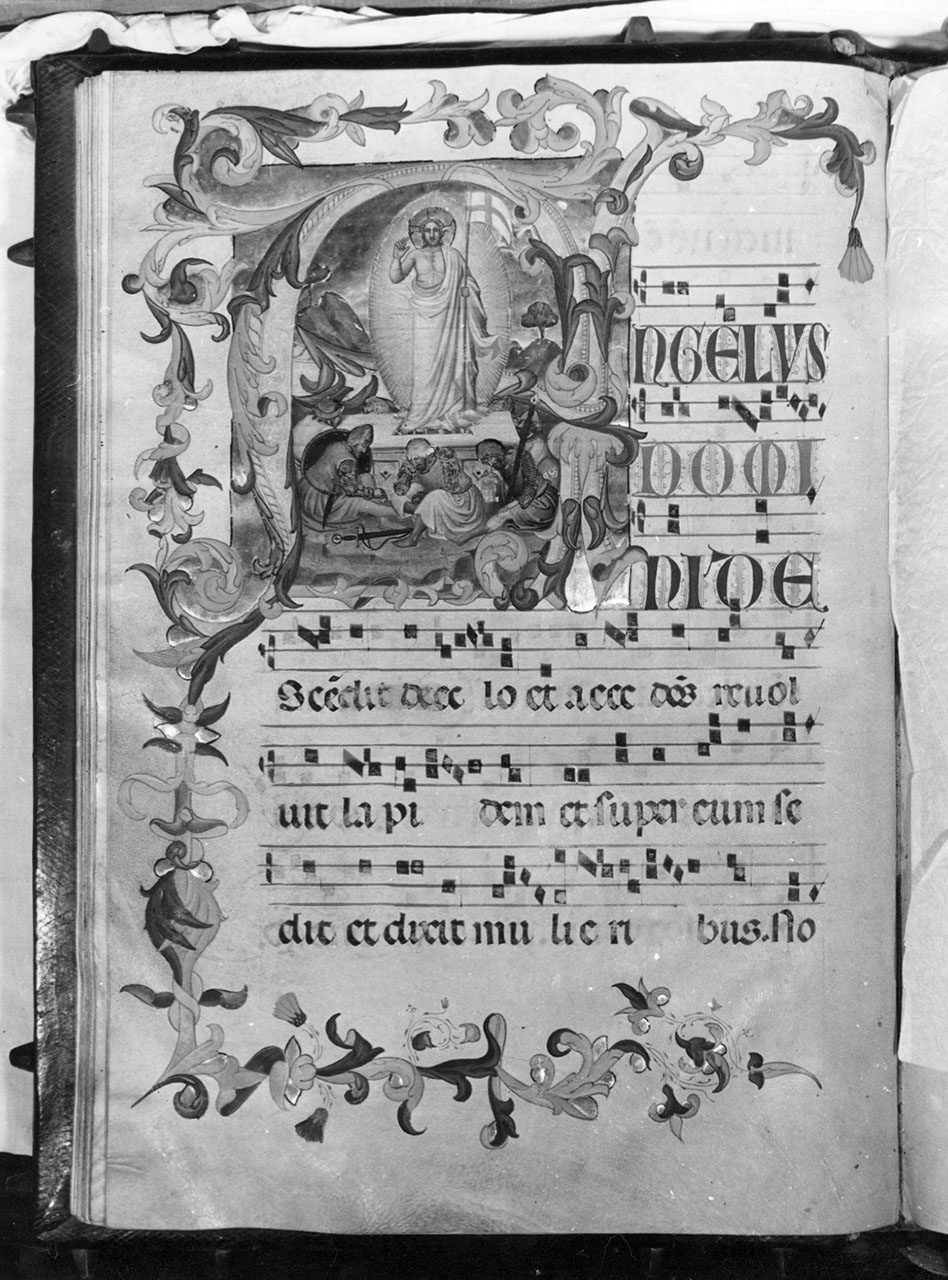 ANGELUS
DOMI
NI DE
Scēdit dece lo et acce dēs reuol
uit la pi dem et super eum se
dit et dixit mu li e ri bus. No